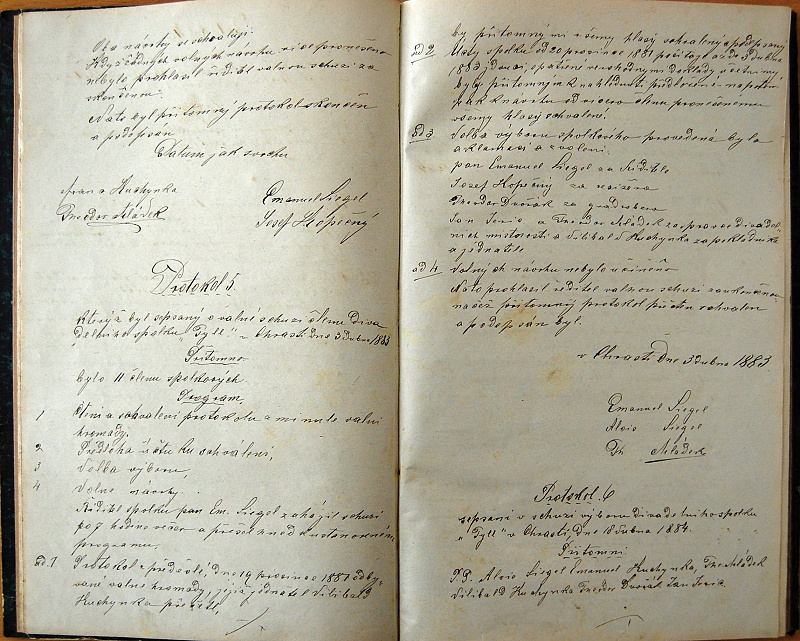 Oba návrhy se schvalují.
Když žádných volných návrhu více proneseno
nebylo prohlásil ředitel valnou schuzi za
skončenou.
Nato byl přítomný protokol skončen
a podepsán
Datum jak svrchu
Huchynka
Emanuel Siegel
Theodor Mládek
Josef Kopečný
Protokol 5.
Který byl sepsaný o valné schuzi členu Diva
delního spolku „Tyll" v Chrasti dne 3 Dubna 1883
Přítomno
bylo 11 členu spolkových.
Program
1 Čtení a schválení protokolu a minulé valní
hromady.
2 Předloha účtu ku schválení,
3 Volba výboru,
4 Volné návrhy.
Ředitel spolku pan Em. Siegel zahájil schuzi
po 7 hodině večer a přešel hned k ustanoveném
programu.
ad 1 Protokol z předešlé, dne 19 prosince 1881 odbý
vané valné hromady, jejž jednatel Vilibald
Huchynka přečetl,
by přítomnými všemi hlasy schválený a podepsaný
ad 2 Účty spolku od 20 prosince 1881 počítajíc až do 3 Dubna
1883 jdoucí, opatřené věrohodnými doklady
byly přítomným k nahlédnutí předložené
pak k návrhu od vícero členu pronešenému
všemy hlasy schváleni.
ad 3 Volba výboru spolkového provedená byla
aklamací a zvoleni:
pan Emanuel Siegel za Ředitele
Josef Kopečný za
Theodor Dvořák za garderobera
Jan a Theodor Mládek za správce divadel-
ních místností a Vilibal Huchynka za pokladníka
a jednatele
ad 4. Volných návrhu nebylo učiněno
Nato prohlásil ředitel valnou schuzi za ukončenou
načež přítomný protokol přečten schválen
a podepsán byl.
v Chrasti dne 3 Dubna 1883
Emanuel Siegel
Alois Siegel
Th. Mládek
Protokol 6
sepsaní v schuzi výboru divadelního spolku
„Tyll" v Chrasti, dne 18 Dubna 1884.
Přítomni:
P.P. Alois Siegel Emanuel Huchynka, The Mládek
Vilibald Huchynka Theodor Dvořák Jan